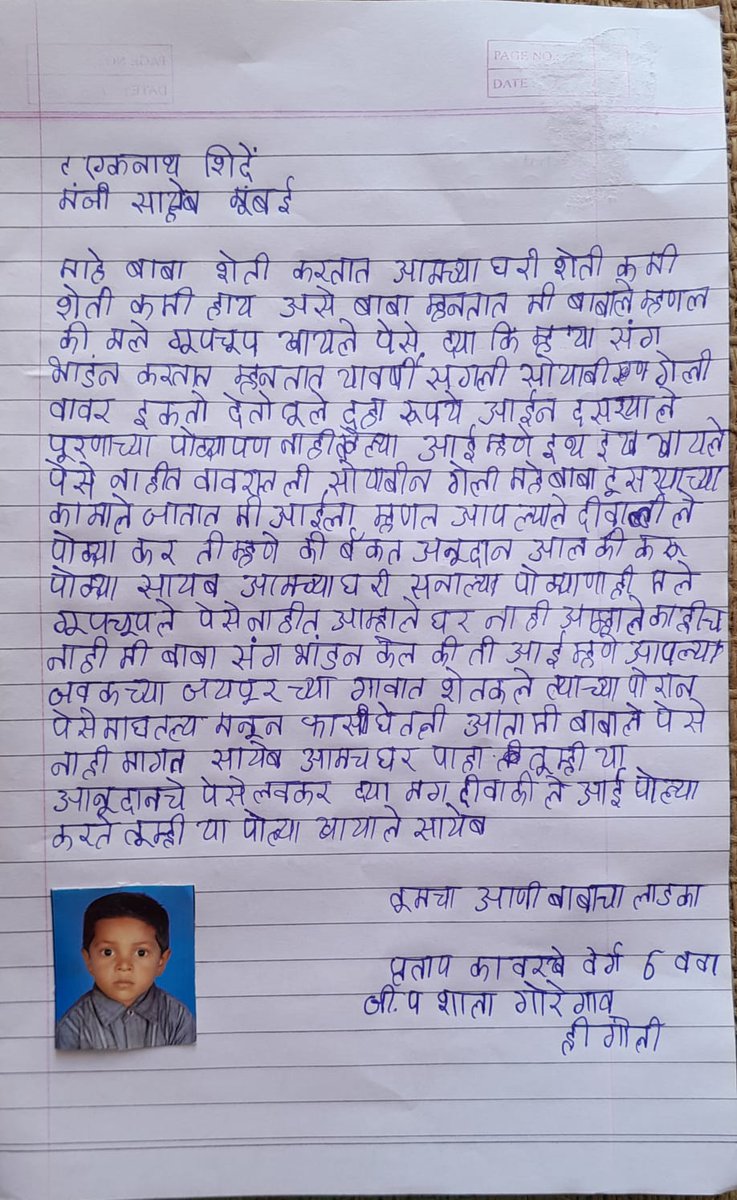 PAGE NO.:
DATE
एकनाथ शिदें
मंत्री साहेब मूंबई
माहे बाबा शेती करतात आमच्या घरी शेती कमी
शेती कमी हाय असे बाबा म्हनतात मी बाबाले म्हणल
की मले गूपचूप खायले पैसे द्या कि मह्या संग
भाडंन करतात म्हनतात यावर्षी सगली सोयाबीण गेली
वावर इकतो देतो तूले दहा रूपये आईन दसऱ्याले
पूरणाच्या पोळ्यापण नाही केल्या आई म्हणे इथ इख खायले
पैसे नाहीत वावरातली सोयाबीन गेली माहे बाबा दूसऱ्याच्या
कामाले जातात मी आईला म्हणल आपल्याले दीवाळीले
पोळ्या कर ती म्हणे की बँकत अनूदान आल की करू
पोळ्या सायब आमच्या घरी सनाल्या पोळ्या नाही मले
गूपचूपले पैसे नाहीत आम्हाले घर नाही आम्हाले काहीच
नाही मी बाबा संग भांडन केल की ती आई म्हणे आपल्या
जवळच्या जयपूरच्या गावात शेतकले त्याच्या पोरान
पैसे माघतल्य मनून फासी घेतली आता मी बाबाले पैसे
नाही मागत सायेब आमच घर पाहा तूम्ही या
आनूदानचे पैसे लवकर द्या मग दीवाळीले आई पोळ्या
करते तूम्ही या पोळ्या खायाले सायेब
तूमचा आणी बाबाचा लाडका
प्रताप कावरखे वर्ग 6 ववा
जी.प शाला गोरेगाव
हीगोली